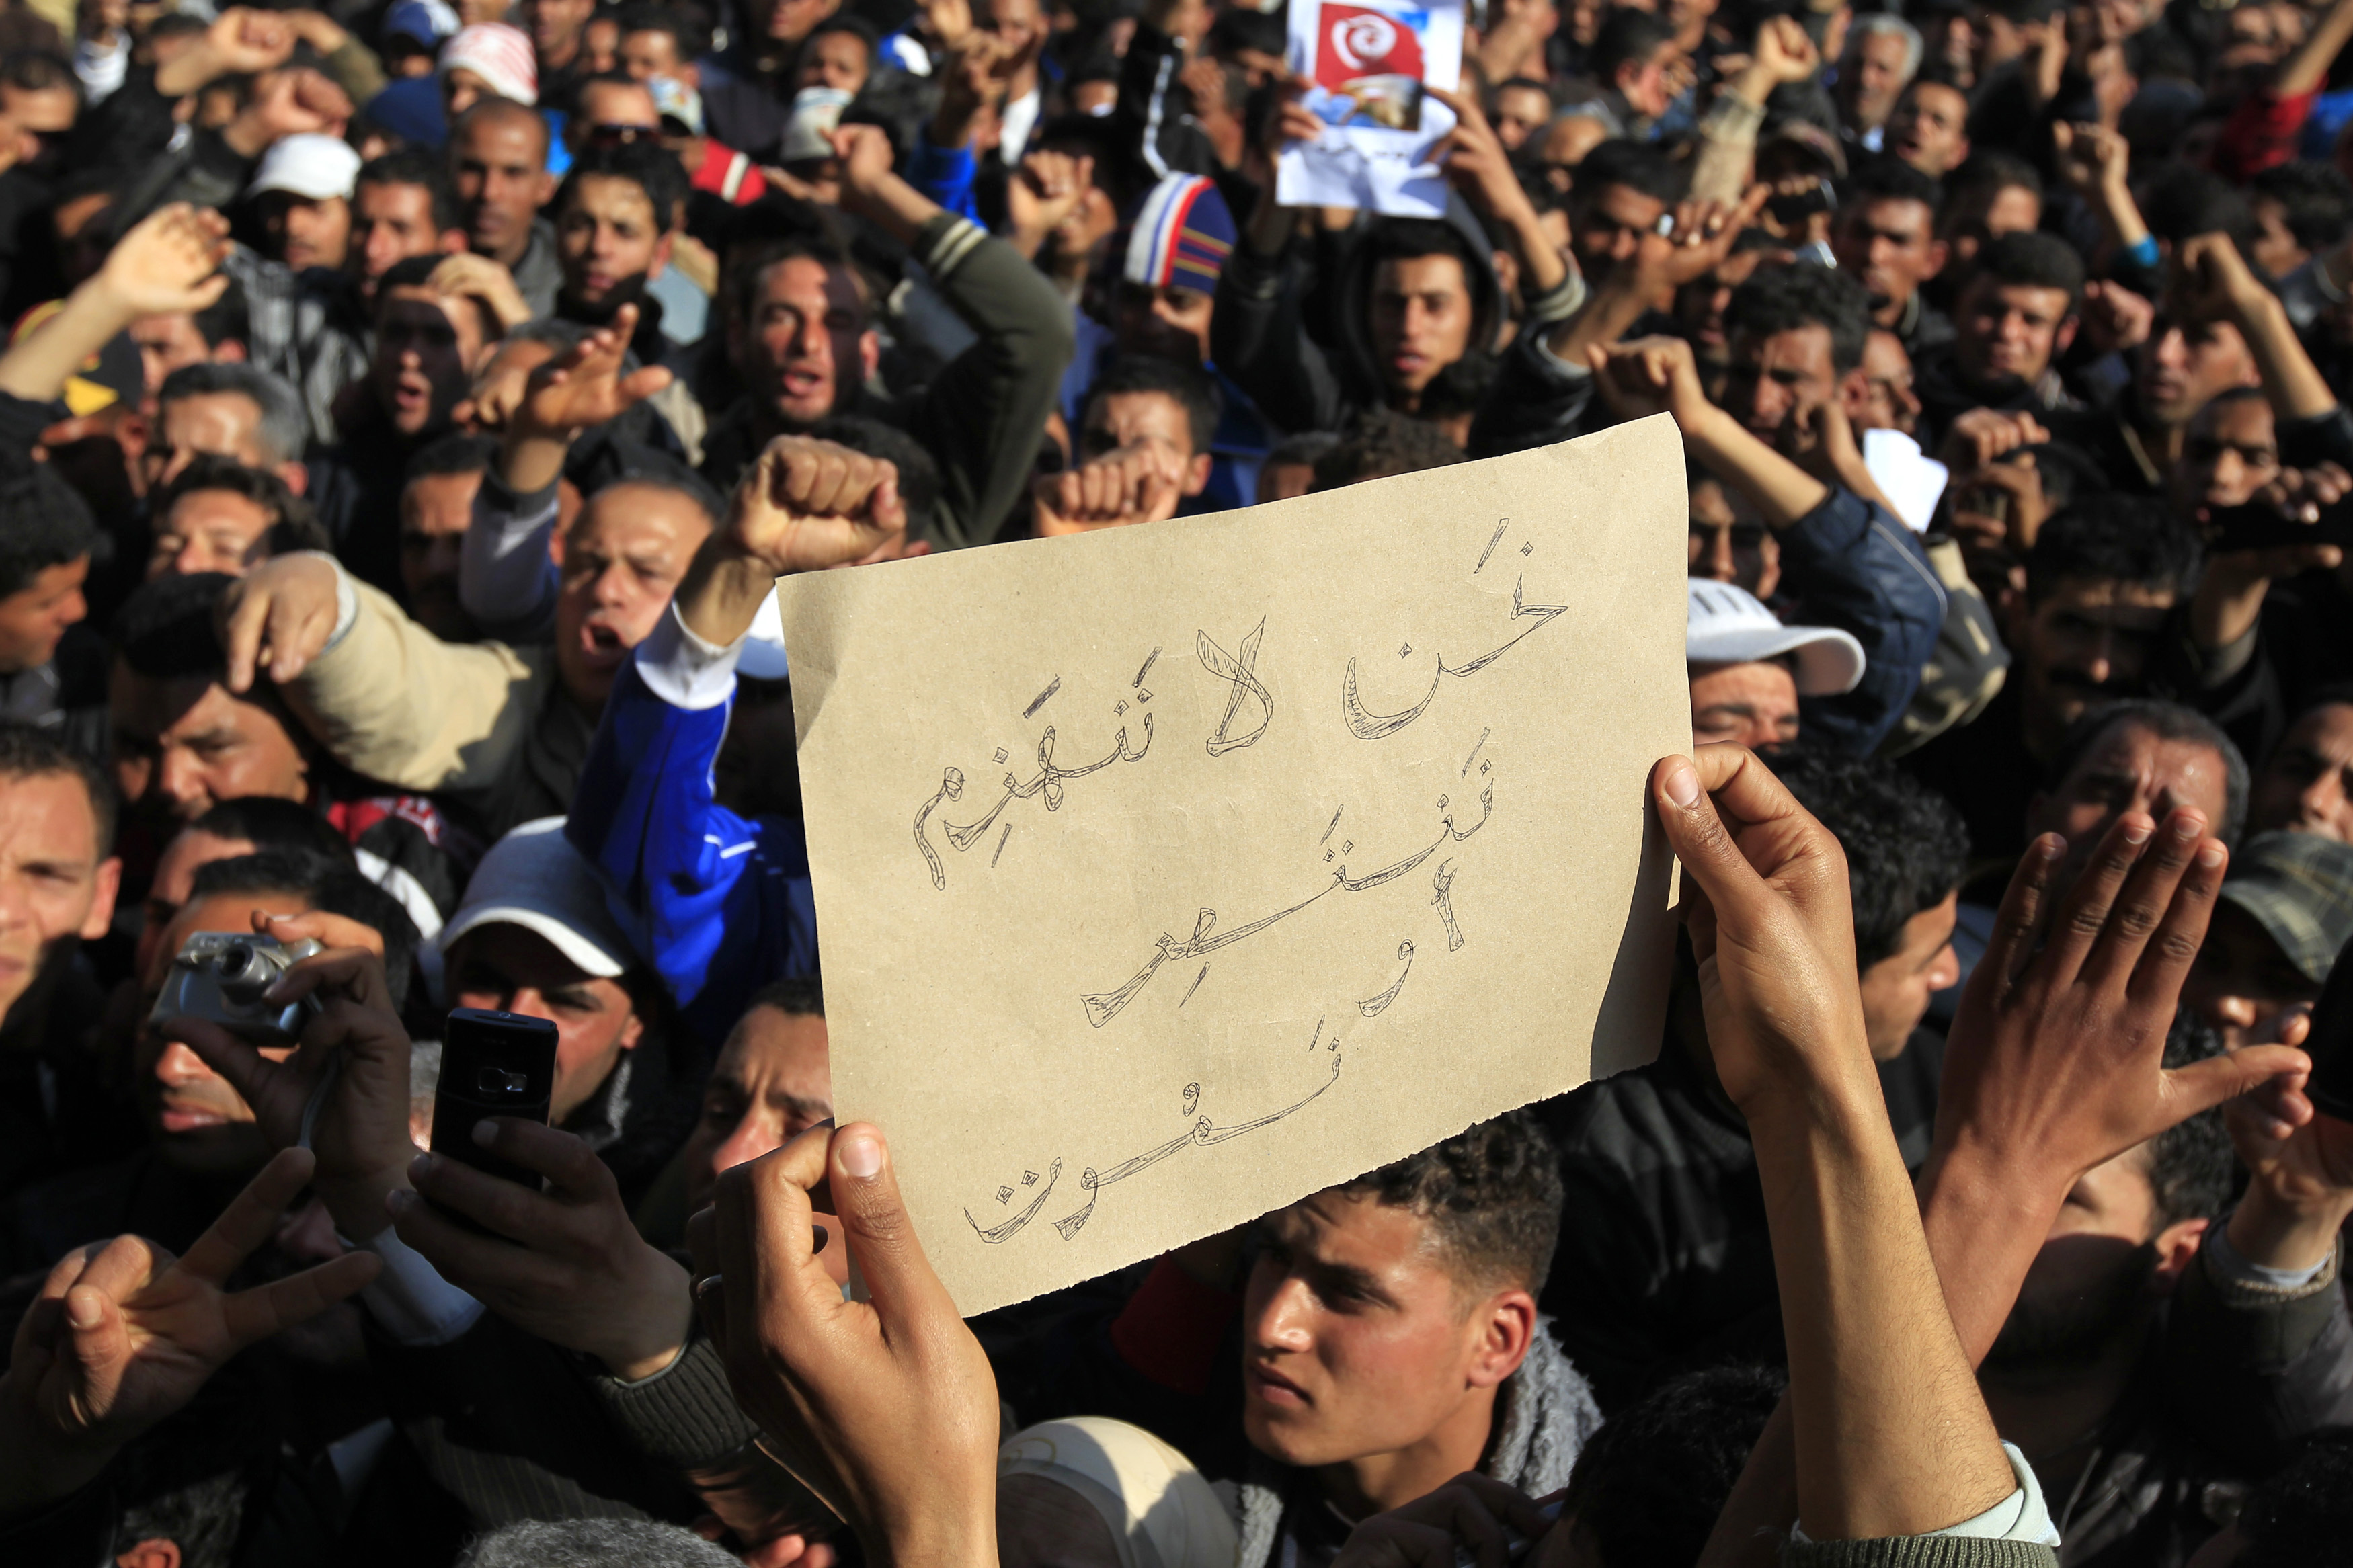 نَحن لا نَنهَزِم
نَنتَصِر
أو
نَمُوْت